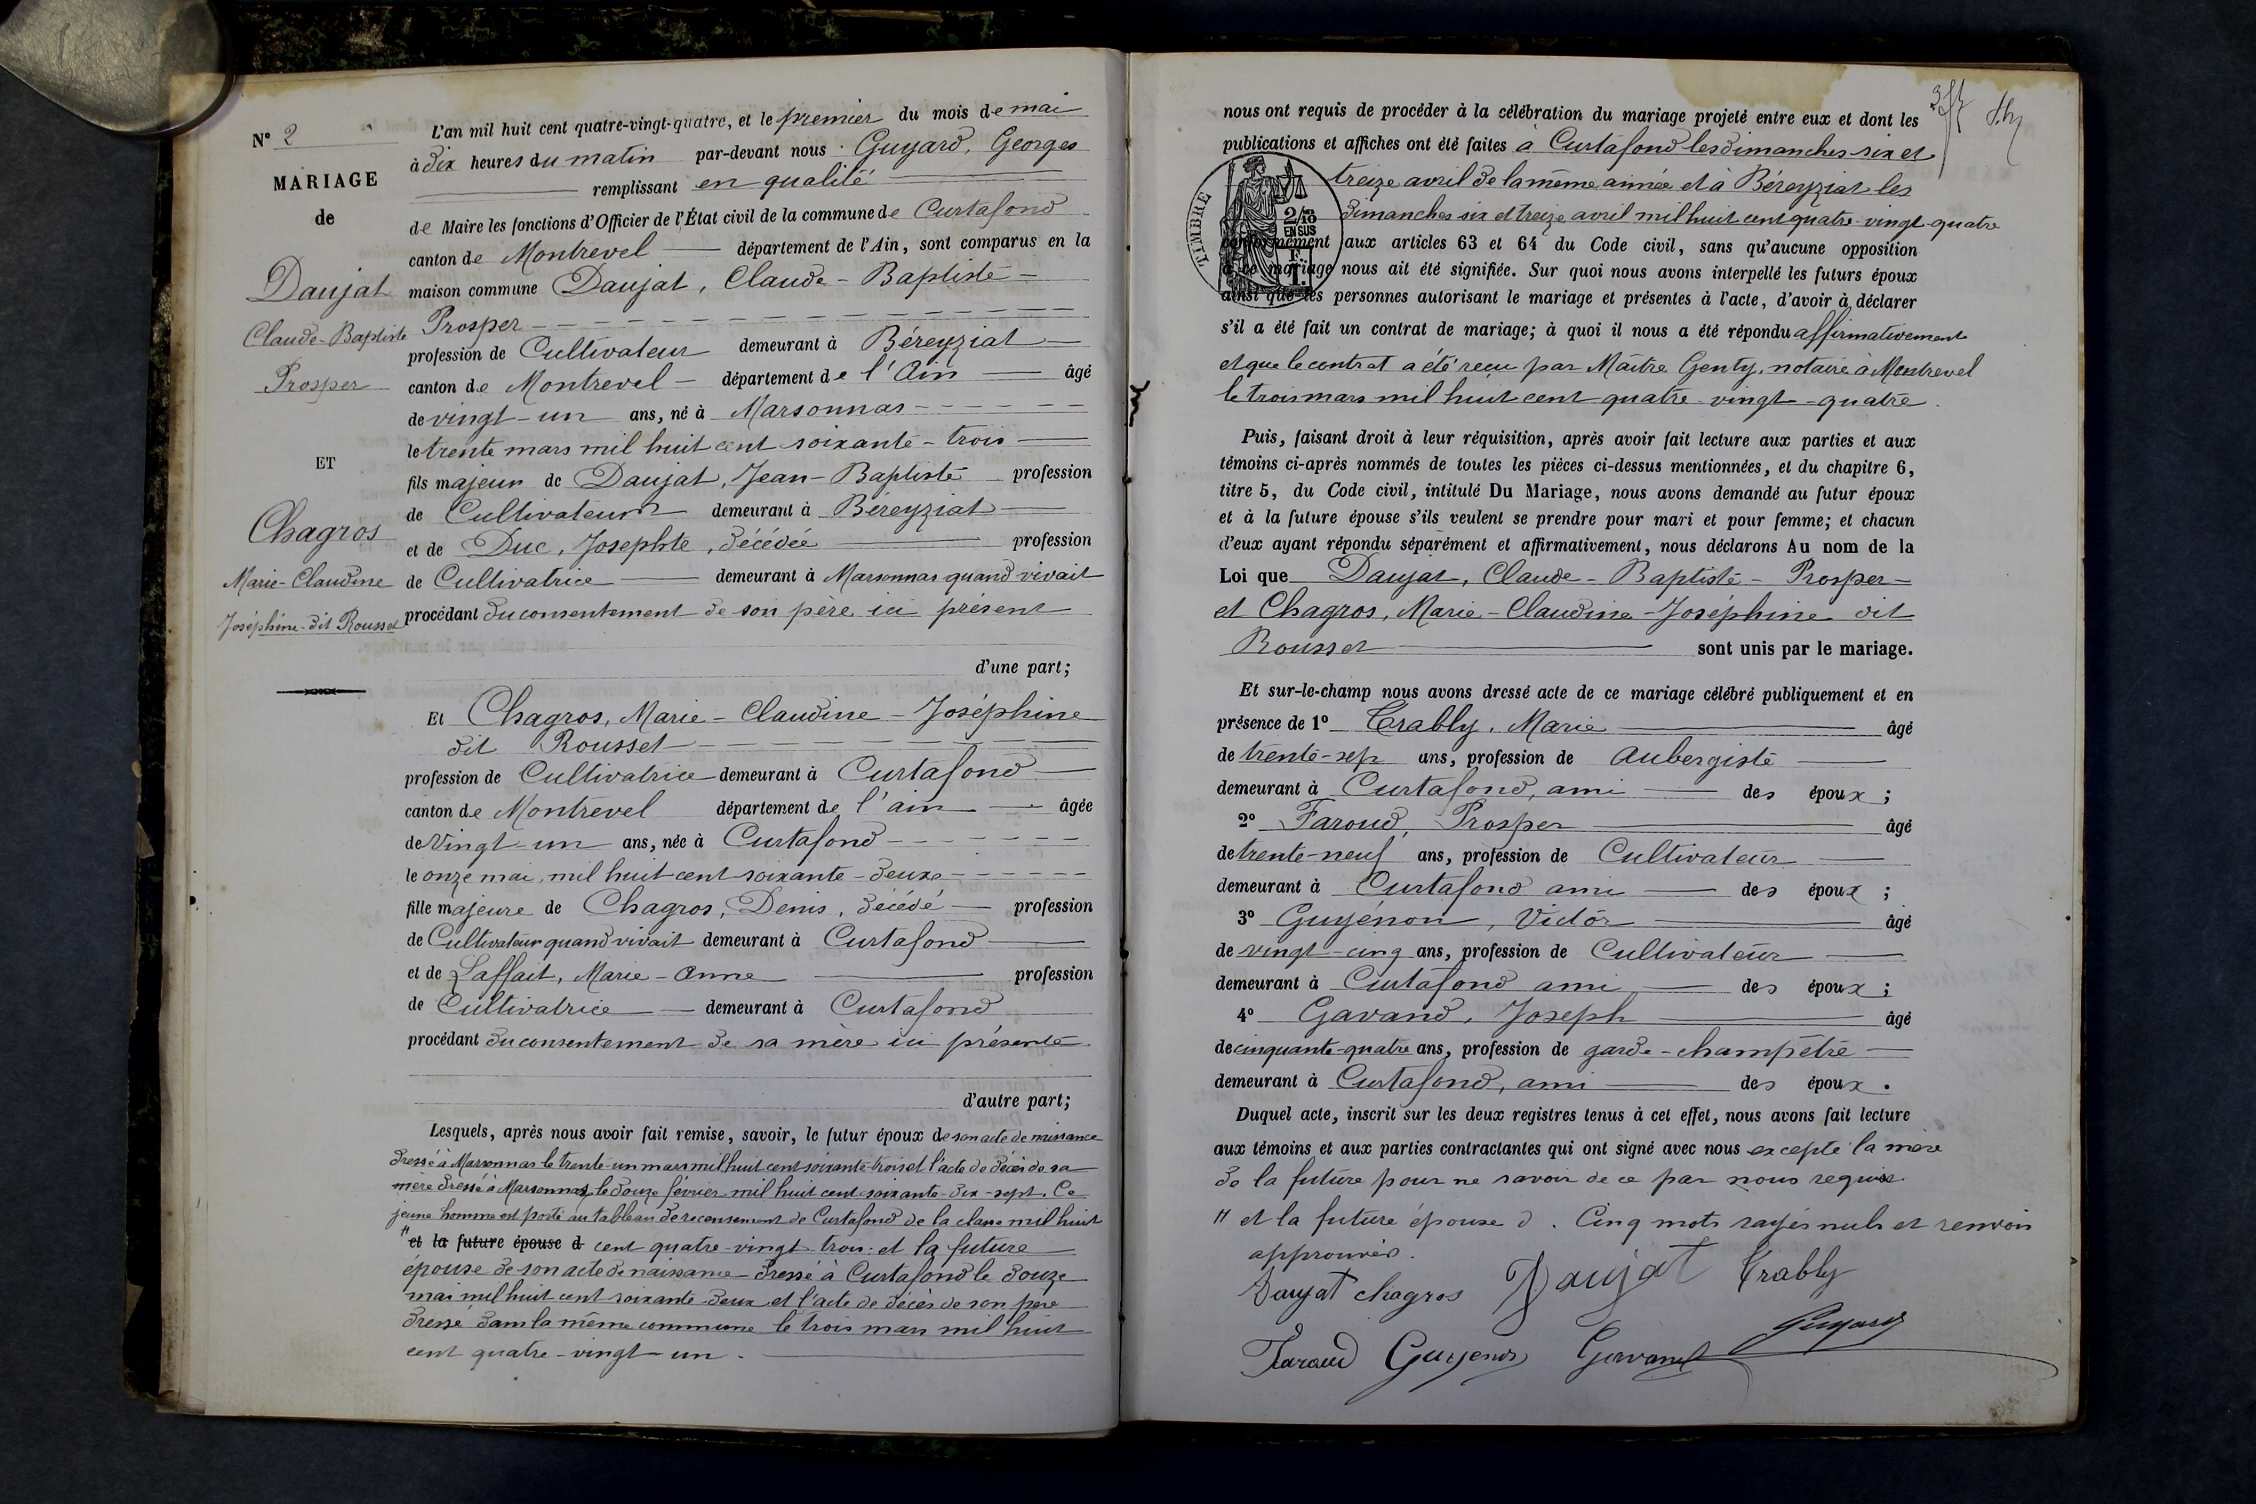 N° 2
MARIAGE
de
Daujat
Claude-Baptiste
Prosper
ET
Chagros
Marie-Claudine
Joséphine-dit Rousset
L'an mil huit cent quatre-vingt-quatre, et le premier du mois de mai
à dix heures du matin par-devant nous Guyard, Georges
remplissant en qualité
de Maire les fonctions d'Officier de l'État civil de la commune de Curtafond
canton de Montrevel département de l'Ain, sont comparus en la
maison commune Daujat, Claude-Baptiste
Prosper
profession de Cultivateur demeurant à Béreyziat
canton de Montrevel département de l'Ain âgé
de vingt-un ans, né à Marsonnas
le trente mars mil huit cent soixante-trois
fils majeur de Daujat, Jean-Baptiste profession
de Cultivateur demeurant à Béreyziat
et de Duc, Josephte, décédée profession
de Cultivatrice demeurant à Marsonnas quand vivait
procédant du consentement de son père ici présent
d'une part;
Et Chagros, Marie-Claudine-Joséphine
dit Rousset
profession de Cultivatrice demeurant à Curtafond
canton de Montrevel département de l'ain âgée
de Vingt-un ans, née à Curtafond
le onze mai mil huit cent soixante-deux
fille majeure de Chagros, Denis, décédé profession
de Cultivateur quand vivait demeurant à Curtafond
et de Laffait, Marie-Anne profession
de Cultivatrice demeurant à Curtafond
procédant du consentement de sa mère ici présente
d'autre part;
Lesquels, après nous avoir fait remise, savoir, le futur époux de son acte de naissance
dressé à Marsonnas le trente-un mars mil huit cent soixante-trois et l'acte de décès de sa
mère dressé à Marsonnas le douze février mil huit cent soixante-dix-sept. Ce
jeune homme est porté au tableau de recensement de Curtafond de la classe mil huit
" et la future épouse d cent quatre-vingt-trois et la future
épouse de son acte de naissance dressé à Curtafond le douze
mai mil huit cent soixante-deux et l'acte de décès de son père
dressé dans la même commune le trois mars mil huit
cent quatre-vingt-un.
nous ont requis de procéder à la célébration du mariage projeté entre eux et dont les
publications et affiches ont été faites à Curtafond les dimanches six et
treize avril de la même année et à Béreyziat les
dimanches six et treize avril mil huit cent quatre-vingt-quatre
TIMBRE
2/10 EN SUS
F. 1.
conformément aux articles 63 et 64 du Code civil, sans qu'aucune opposition
à ce mariage nous ait été signifiée. Sur quoi nous avons interpellé les futurs époux
ainsi que les personnes autorisant le mariage et présentes à l'acte, d'avoir à déclarer
s'il a été fait un contrat de mariage; à quoi il nous a été répondu affirmativement
et que le contrat a été reçu par Maître Genty, notaire à Montrevel
le trois mars mil huit cent quatre-vingt-quatre.
Puis, faisant droit à leur réquisition, après avoir fait lecture aux parties et aux
témoins ci-après nommés de toutes les pièces ci-dessus mentionnées, et du chapitre 6,
titre 5, du Code civil, intitulé Du Mariage, nous avons demandé au futur époux
et à la future épouse s'ils veulent se prendre pour mari et pour femme; et chacun
d'eux ayant répondu séparément et affirmativement, nous déclarons Au nom de la
Loi que Daujat, Claude-Baptiste-Prosper
et Chagros, Marie-Claudine-Joséphine dit
Rousset sont unis par le mariage.
Et sur-le-champ nous avons dressé acte de ce mariage célébré publiquement et en
présence de 1° Trably, Marie âgé
de trente-sep ans, profession de Aubergiste
demeurant à Curtafond, ami des époux;
2° Faroud, Prosper âgé
de trente-neuf ans, profession de Cultivateur
demeurant à Curtafond ami des époux;
3° Guyénon, Victor âgé
de vingt-cinq ans, profession de Cultivateur
demeurant à Curtafond ami des époux;
4° Gavand, Joseph âgé
de cinquante-quatre ans, profession de garde-champêtre
demeurant à Curtafond, ami des époux.
Duquel acte, inscrit sur les deux registres tenus à cet effet, nous avons fait lecture
aux témoins et aux parties contractantes qui ont signé avec nous excepté la mère
de la future pour ne savoir de ce par nous requise.
" et la future épouse d. Cinq mots rayés nuls et renvois
approuvés.
Daujat chagros Daujat Trably
Faroud Guyenon Gavand Guyard